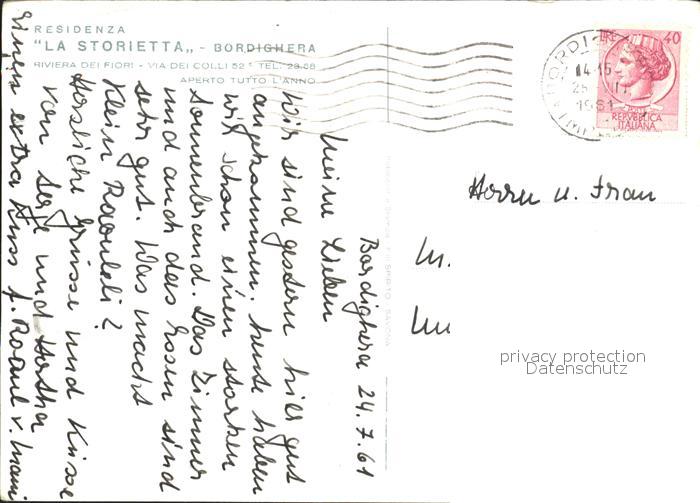 RESIDENZA
"LA STORIETTA„ - BORDIGHERA
RIVIERA DEI FIORI - VIA DEI COLLI 52 - TEL. 28.88
APERTO TUTTO L'ANNO
BORDI
14-15
25
1961
LIRE 40
POSTE
REPVBBLICA
ITALIANA
Bordighera 24.7.61
Meine Lieben
Wir sind gestern hier gut
angekommen. heute haben
wir schon einen starken
Sonnenbrand. Das Zimmer
und auch das Essen sind
sehr gut. Was macht
Klein Raoueli?
Herzliche Grüsse und Küsse
von Serge und
einen extra Kuss f. Raoul v. Mami
Herrn u. Frau
M.
privacy protection
Datenschutz